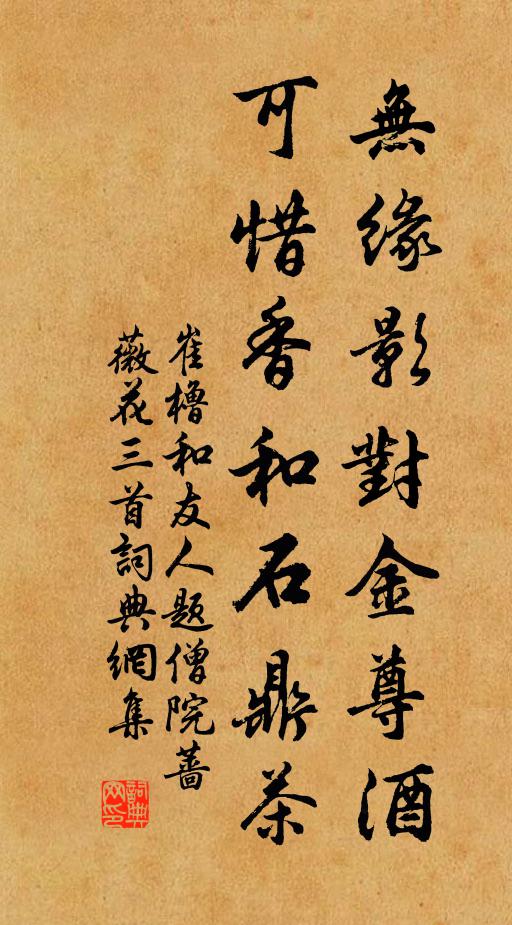 無緣影對金尊酒
可惜香和石鼎茶
崔櫓和友人题僧院蔷
薇花三首詞典網集
詞典網印